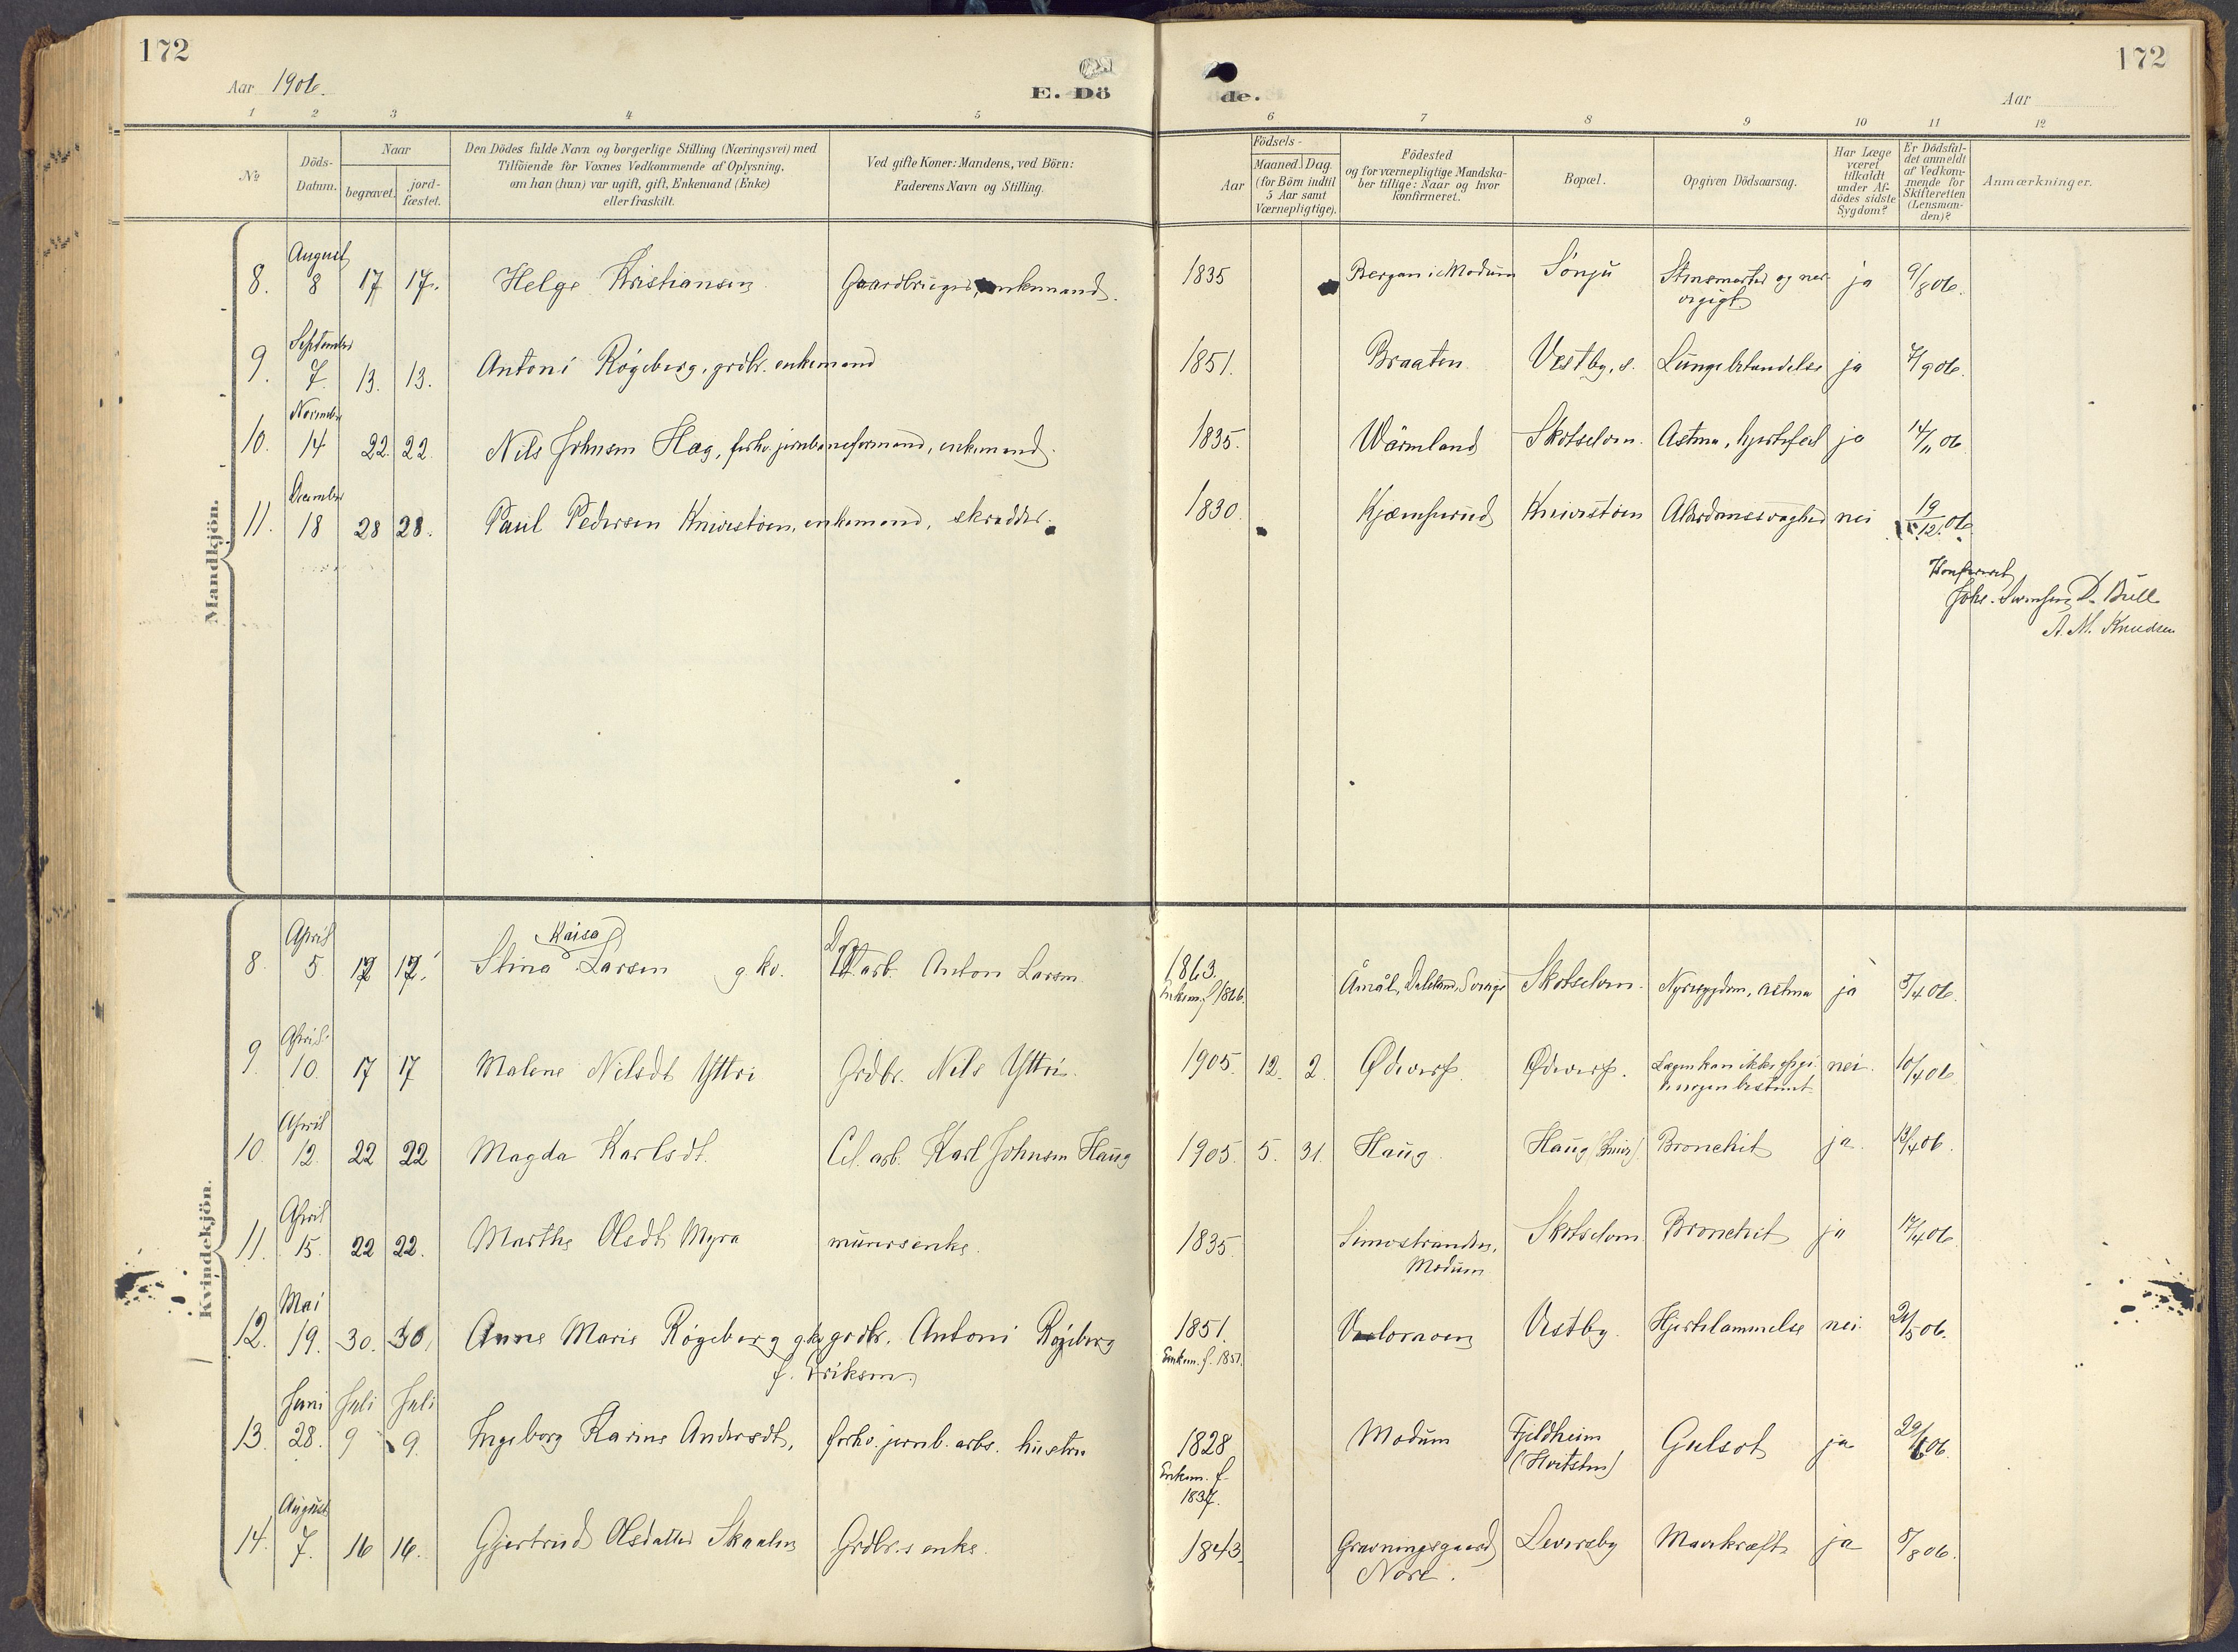 172
172
Aar 1906.
E. Dö
de.
Aar
1 2 3 4 5 6 7 8 9 10 11 12
№
Döds-
Datum.
Naar
begravet.
jord-
fæstet.
Den Dödes fulde Navn og borgerlige Stilling (Næringsvei) med
Tilföiende for Voxnes Vedkommende af Oplysning,
om han (hun) var ugift, gift, Enkemand (Enke)
eller fraskilt.
Ved gifte Koner: Mandens, ved Börn:
Faderens Navn og Stilling.
Födsels-
Aar
Maaned. Dag.
(for Börn indtil
5 Aar samt
Værnepligtige).
Födested
og for værnepligtige Mandska-
ber tillige: Naar og hvor
konfirmeret.
Bopæl.
Opgiven Dödsaarsag.
Har Læge
været
tilkaldt
under Af-
dödes sidste
Sygdom?
Er Dödsfal-
det anmeldt
af Vedkom-
mende for
Skifteretten
(Lensman-
den)?
Anmærkninger.
Mandkjön.
August
8. 8 17 17. Helge Kristiansen Gaardbruger, enkemand. 1835 Bergan i Modum Sönju ja 9/8 06.
September
9. 7. 13. 13. Antoni Rögeberg, grdbr. enkemand 1851. Braaten Vestby, s. Lungebetændelse ja 7/9 06.
November
10. 14 22 22 Nils Johnsen Hag, forhv. jernbaneformand, enkemand. 1835. Wärmland Skotselven. Astma, hjertefeil ja 14/11 06
December
11. 18 28 28. Paul Pedersen Kniveston, enkemand, skrædder. 1830. Kjæmperud Kniveston Alderdomssvaghed nei 19/12 06
Konfereret
Johs. Svensen D. Bull
A. M. Knudsen
Kvindekjön.
April Kaisa
8. 5. 12 12. Stina Larsen g. kv. arb. Anton Larsen 1863. Åmål, Dalsland, Sverige Skotselven. Nyresygdom, astma ja 5/4 06.
Enkem. f. 1866.
April
9. 10. 17 17 Malene Nilsdt Yttri Grdbr. Nils Yttri. 1905. 12. 2. Ødeverp. Ødeverp. Lægen kan ikke opgi nei. 10/4 06
noegen bestemt
April
10. 12. 22 22 Magda Karlsdt. Cel. arb. Karl Johnsen Haug 1905. 5. 31. Haug Haug Bronchit ja. 13/4 06.
April
11. 15. 22 22. Marthe Olsdt Myra murersenke. 1835. Simostranden, Skotselven Bronchit ja 17/4 06.
Modum
Mai
12. 19. 30. 30. Anne Marie Rögeberg g.kv. grdbr. Antoni Rögeberg 1851. Vestby. Hjertelammelse nei 21/5 06.
f. Eriksen. Enkem. f. 1851.
Juni Juli Juli
13. 28. 9 9. Ingeborg Karine Andersdt. forhv. jernb. arbs. hustru 1828 Modum Fjeldheim Gulsot ja 29/6 06.
Enkem. f.
1837.
August
14. 7. 16 16. Gjertrud Olsdatter Skaalen Grdbr.s enke. 1843. Gravningsgaard Leversby Mavekræft ja 8/8 06.
Nore.